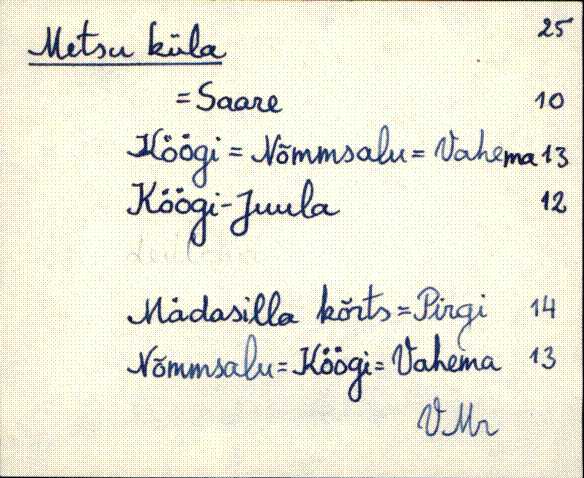 Metsu küla 25
=Saare 10
Köögi = Nõmmsalu = Vahema 13
Köögi-Juula 12
Mädasilla kõrts = Pirgi 14
Nõmmsalu = Köögi = Vahema 13
VMr